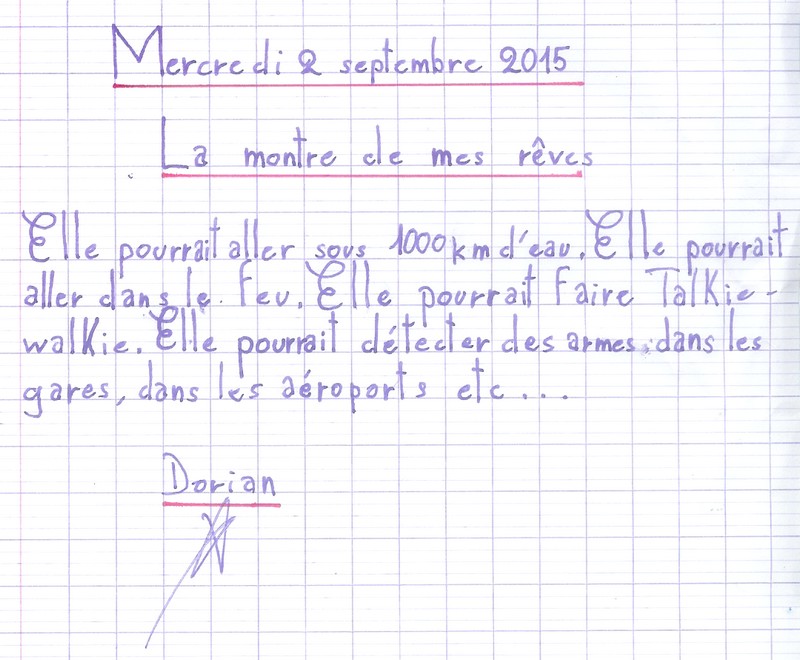 Mercredi 2 septembre 2015
La montre de mes rêves
Elle pourrait aller sous 1000 km d'eau. Elle pourrait
aller dans le feu. Elle pourrait faire Talkie-
walkie. Elle pourrait détecter des armes dans les
gares, dans les aéroports etc...
Dorian